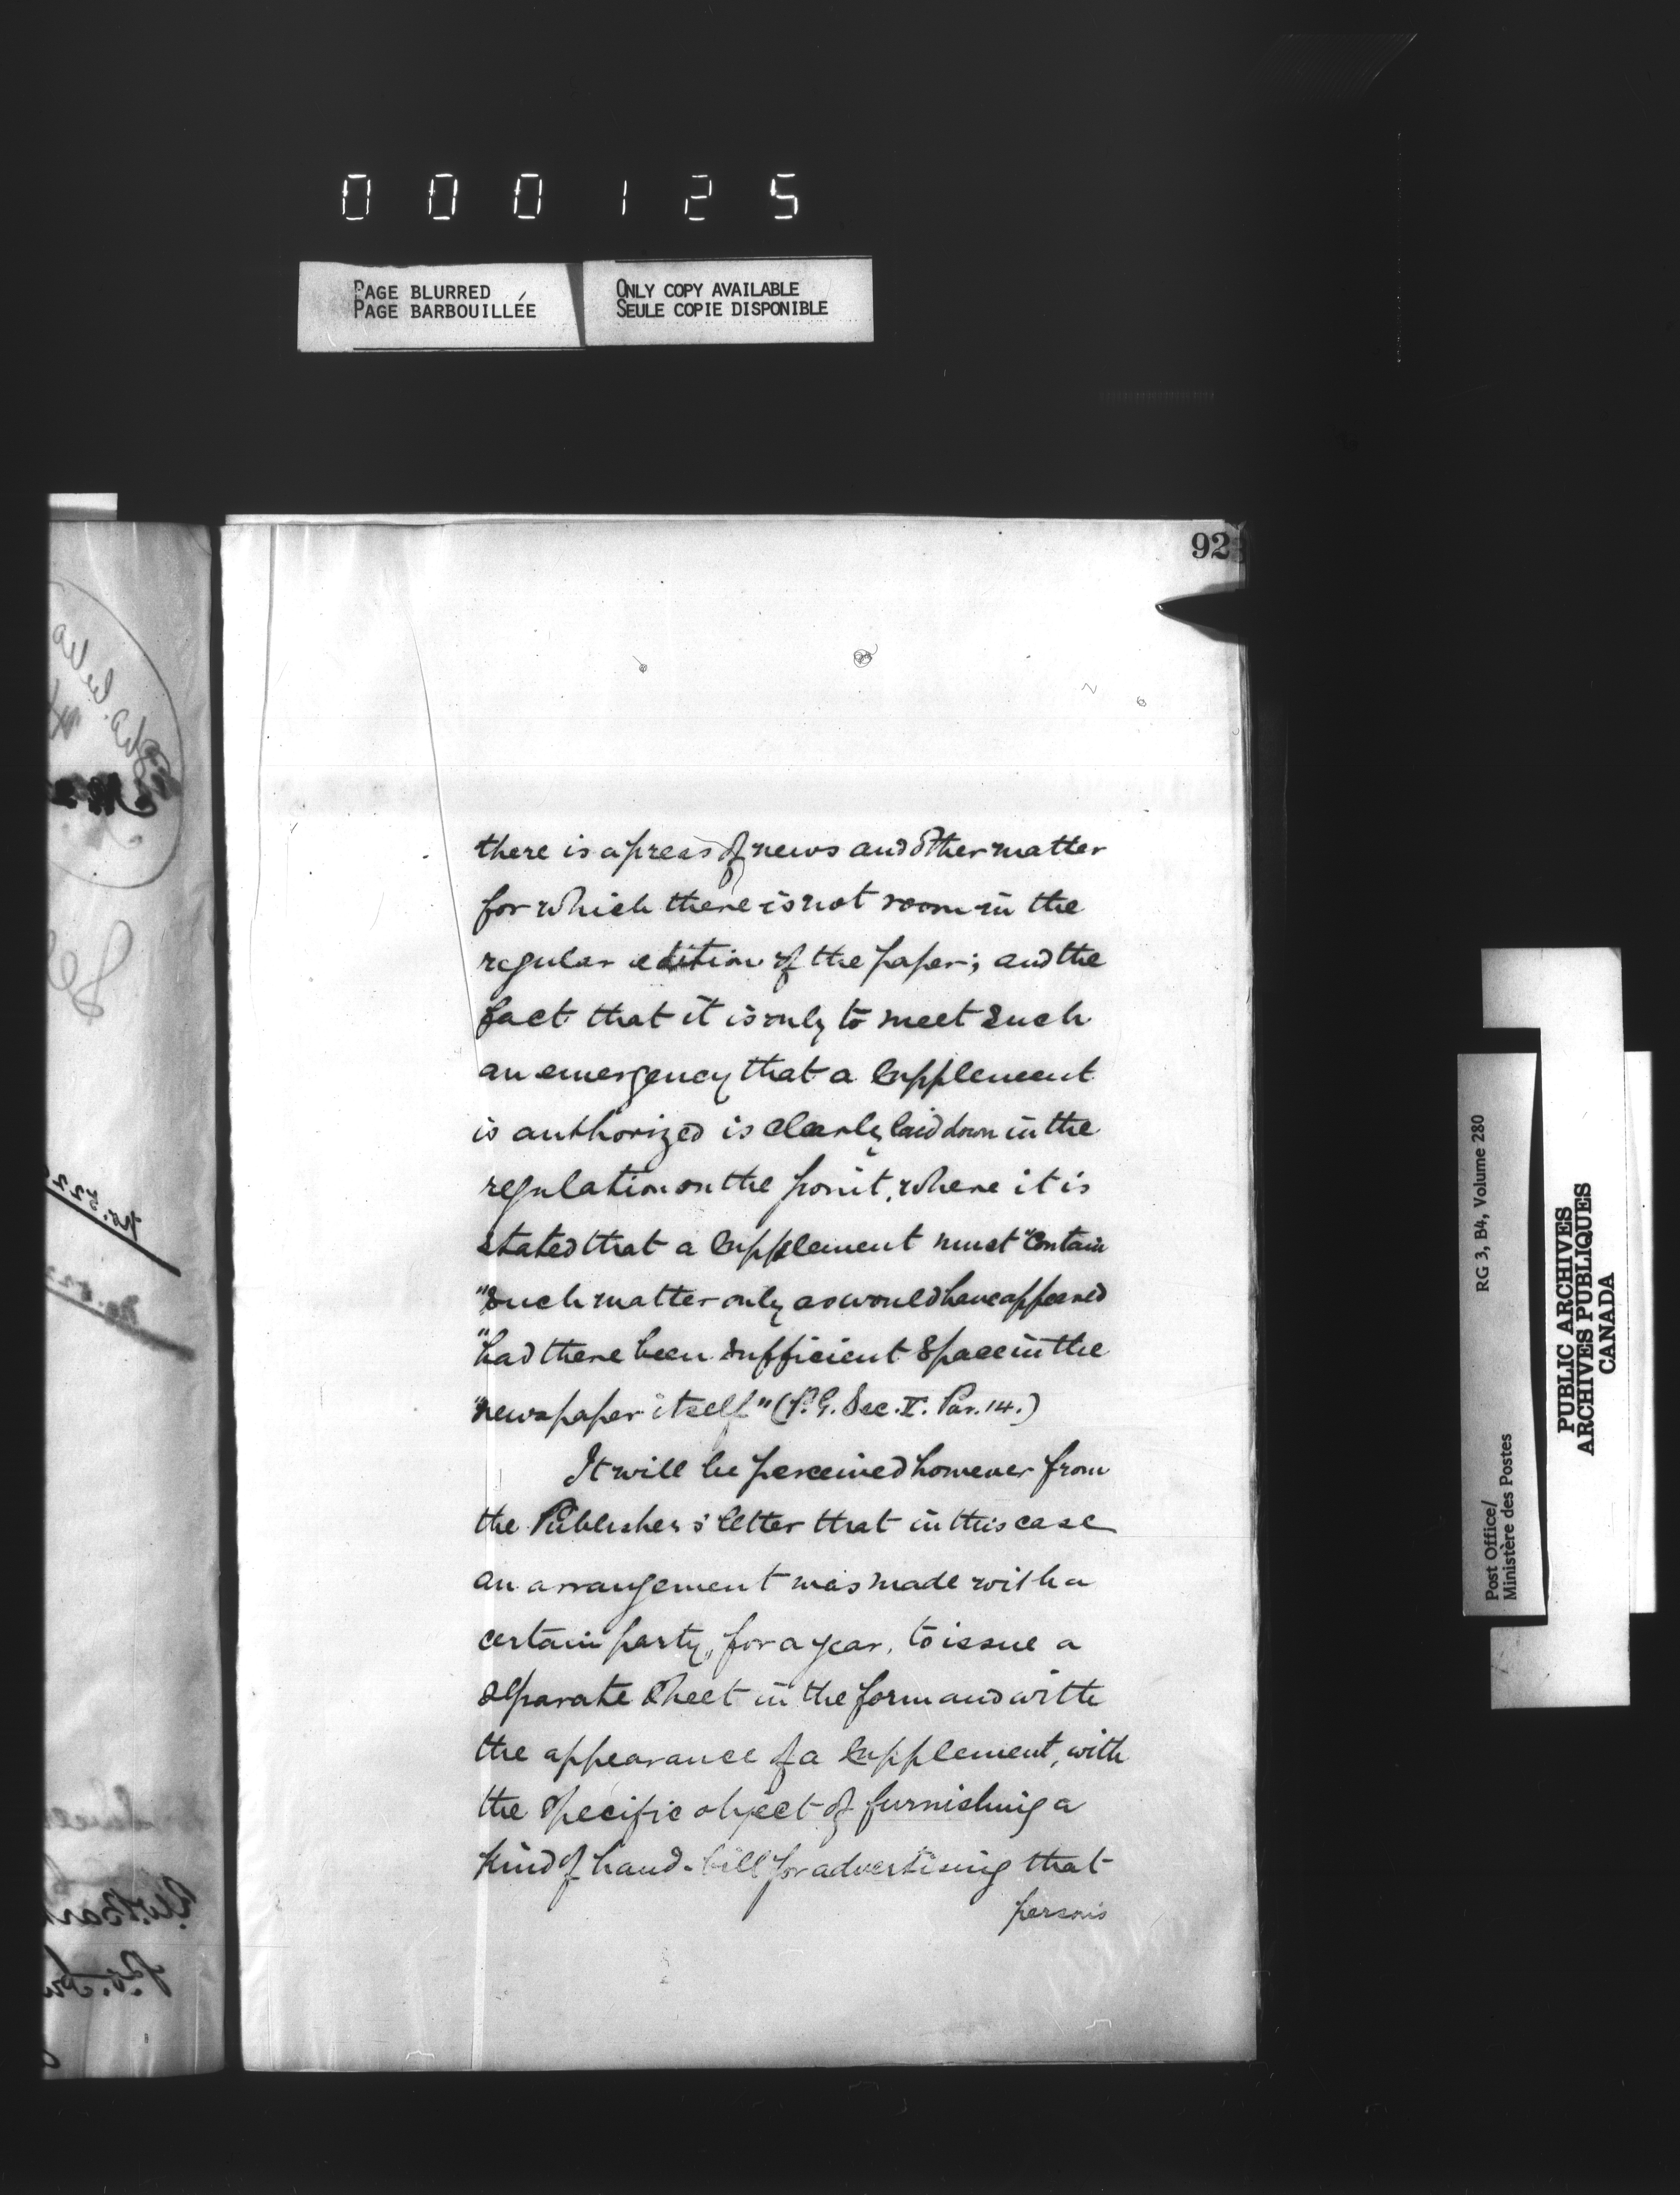 000125
PAGE BLURRED
PAGE BARBOUILLÉE
ONLY COPY AVAILABLE
SEULE COPIE DISPONIBLE
92
there is a press of news and other matter
for which there is not room in the
regular edition of the paper; and the
fact that it is only to meet such
an emergency that a Supplement
is authorized is clearly laid down in the
regulation on the point, where it is
stated that a Supplement must "Contain
"Such matter only as would have appeared
"had there been sufficient Space in the
"newspaper itself" (P.G. Sec. V. Par. 14.)
It will be perceived however from
the Publishers' letter that in this case
an arrangement was made with a
certain party, for a year, to issue a
separate Sheet in the form and with
the appearance of a Supplement, with
the specific object of furnishing a
kind of hand-bill for advertising that
persons
RG 3, B4, Volume 280
Post Office/
Ministère des Postes
PUBLIC ARCHIVES
ARCHIVES PUBLIQUES
CANADA